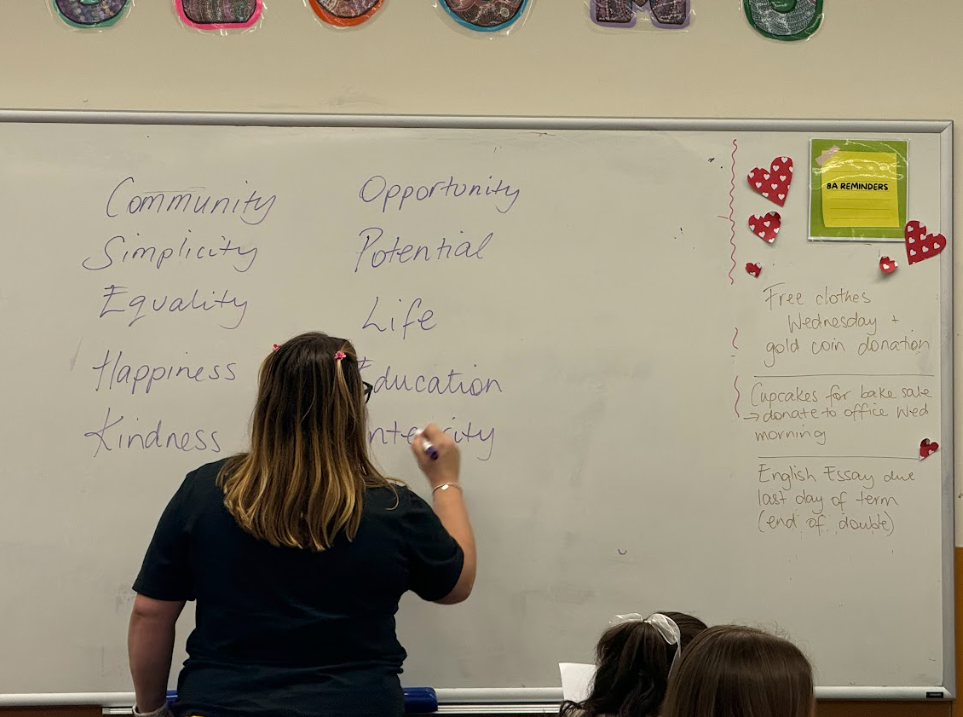 Community
Simplicity
Equality
Happiness
Kindness
Opportunity
Potential
Life
Education
Integrity
8A REMINDERS
Free clothes
Wednesday +
gold coin donation
Cupcakes for bake sale
→ donate to office Wed
morning
English Essay due
last day of term
(end of double)